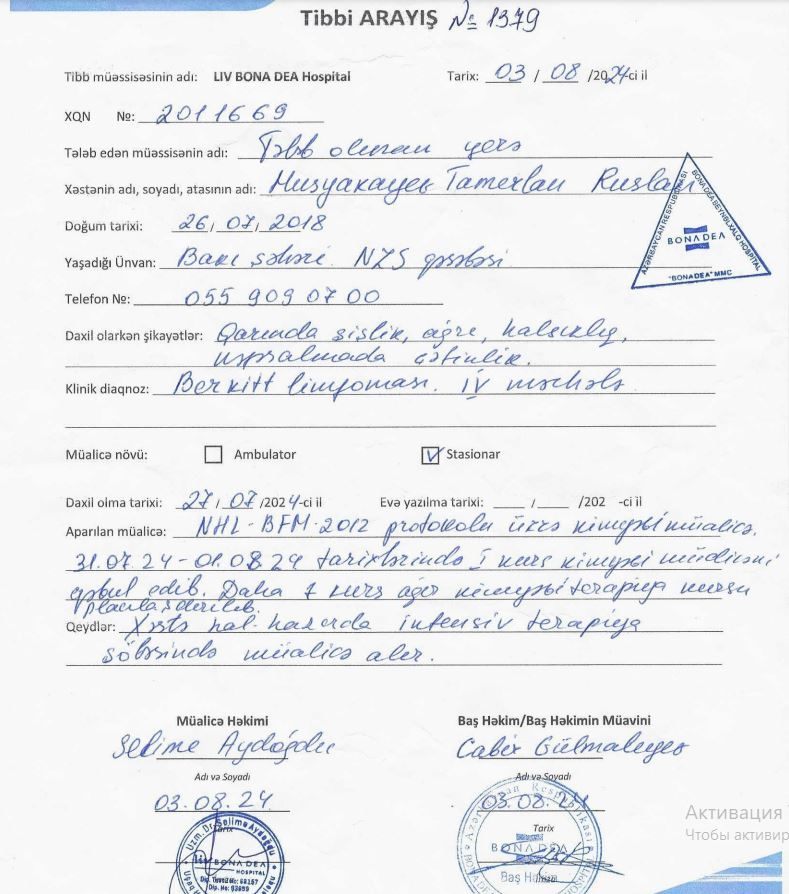 Tibbi ARAYIŞ № 1379
Tibb müəssisəsinin adı: LIV BONA DEA Hospital Tarix: 03 / 08 /2024-ci il
XQN №: 2011669
Tələb edən müəssisənin adı: Tələb olunan yerə
Xəstənin adı, soyadı, atasının adı: Musyakayev Tamerlan Ruslan
Doğum tarixi: 26, 07, 2018
Yaşadığı Ünvan: Bakı şəhəri NZS qəsəbəsi
Telefon №: 055 909 07 00
Daxil olarkən şikayətlər: Qarında şişlik, ağrı, halsızlıq,
çətinlik.
Klinik diaqnoz: Berkitt limfoması. IV mərhələ
Müalicə növü: Ambulator Stasionar
Daxil olma tarixi: 27 / 07 /2024-ci il Evə yazılma tarixi: ___ / ___ /202 -ci il
Aparılan müalicə: NHL-BFM-2012 protokolu üzrə kimyəvi müalicə.
31.07.24-01.08.24 tarixlərində I kurs kimyəvi müalicəni
qəbul edib. Daha 7 kurs ağır kimyəvi terapiya kursu
planlaşdırılıb.
Qeydlər: Xəstə hal-hazırda intensiv terapiya
şöbəsində müalicə alır.
Müalicə Həkimi Baş Həkim/Baş Həkimin Müavini
Selime Aydoğdu Cabir Gülmalıyev
Adı və Soyadı Adı və Soyadı
03.08.24 03.08.24
Tarix Tarix
AZƏRBAYCAN RESPUBLİKASI
BONA DEA BEYNƏLXALQ HOSPITAL
BONA DEA
"BONADEA" MMC
Uzm. Dr. Selime Aydoğdu
LIV BONA DEA
HOSPITAL
Azərbaycan Respublikası
BONA DEA
Baş Həkim
Активация
Чтобы активир